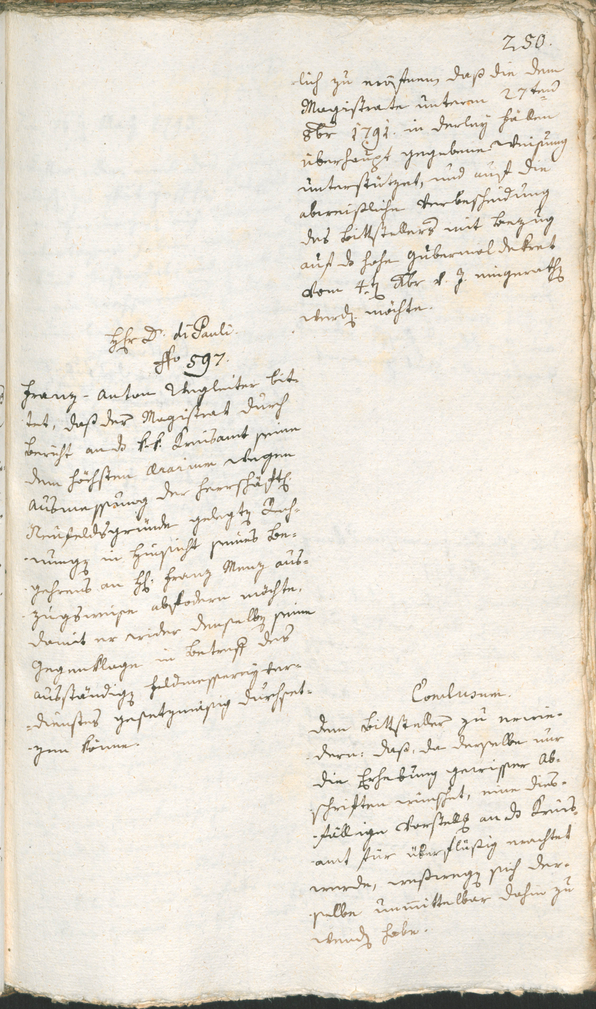 250.
lich zu eröffnen, daß die dem
Magistrate unterm 27ten
8br 1791. in derley Fällen
überhaupt gegebene Weisung
unterstützet, und auf die
abweißliche Verbescheidung
des Bittstellers mit Bezug
auf das hohe Gubernial Dekret
vom 4. 8br v. J. eingerathen
werden möchte.
H. Dr. di Pauli.
No 597.
Franz-Anton Vogleiter bit-
tet, daß der Magistrat durch
Bericht an das k.k. Kreisamt seine
dem höchsten Ärarium wegen
Ausmessung der herrschaftl.
Neufeldsgründe gelegte Rech-
nungen in Hinsicht seines Be-
gehrens an H. Franz Menz aus-
zugsweise abfodern möchte,
damit er wider denselben seine
Gegenklage in Betreff des
ausständigen Feldmesserey ver-
dienstes gesetzmäsig durchset-
zen könne.
Conclusum.
dem Bittsteller zu erwie-
dern: daß, da derselbe nur
die Erhebung gewisser Ab-
schriften wünschet, eine dies-
fällige Vorstellung an das Kreis-
amt für überflüßig erachtet
werde, weßwegen sich der-
selbe unmittelbar dahin zu
wenden habe.